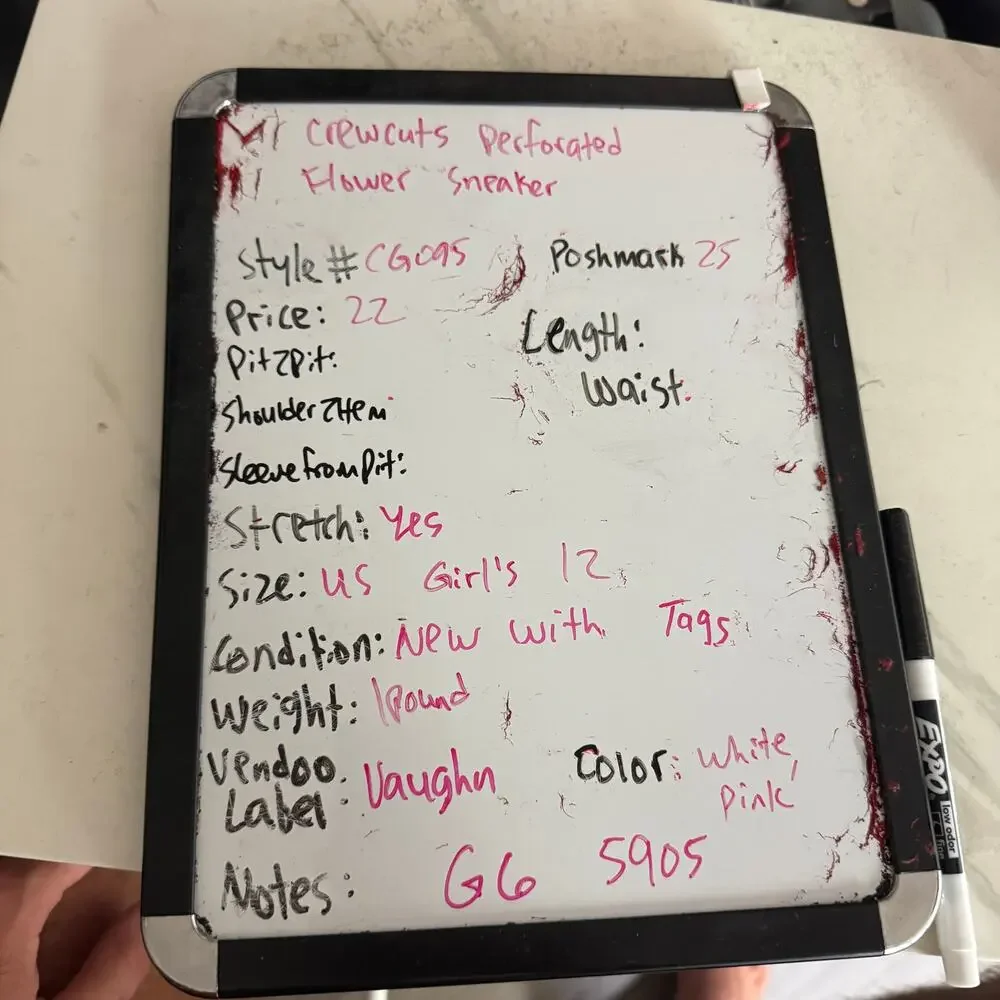 Crewcuts Perforated
Flower Sneaker
Style # CG095 Poshmark 25
Price: 22
Length:
Pit2Pit:
Waist:
Shoulder2Hem
Sleevefrompit:
Stretch: Yes
Size: US Girl's 12
Condition: New with Tags
Weight: 1 Pound
Vendoo Label: Vaughn
Color: White, Pink
Notes: G6 5905
EXPO
low odor